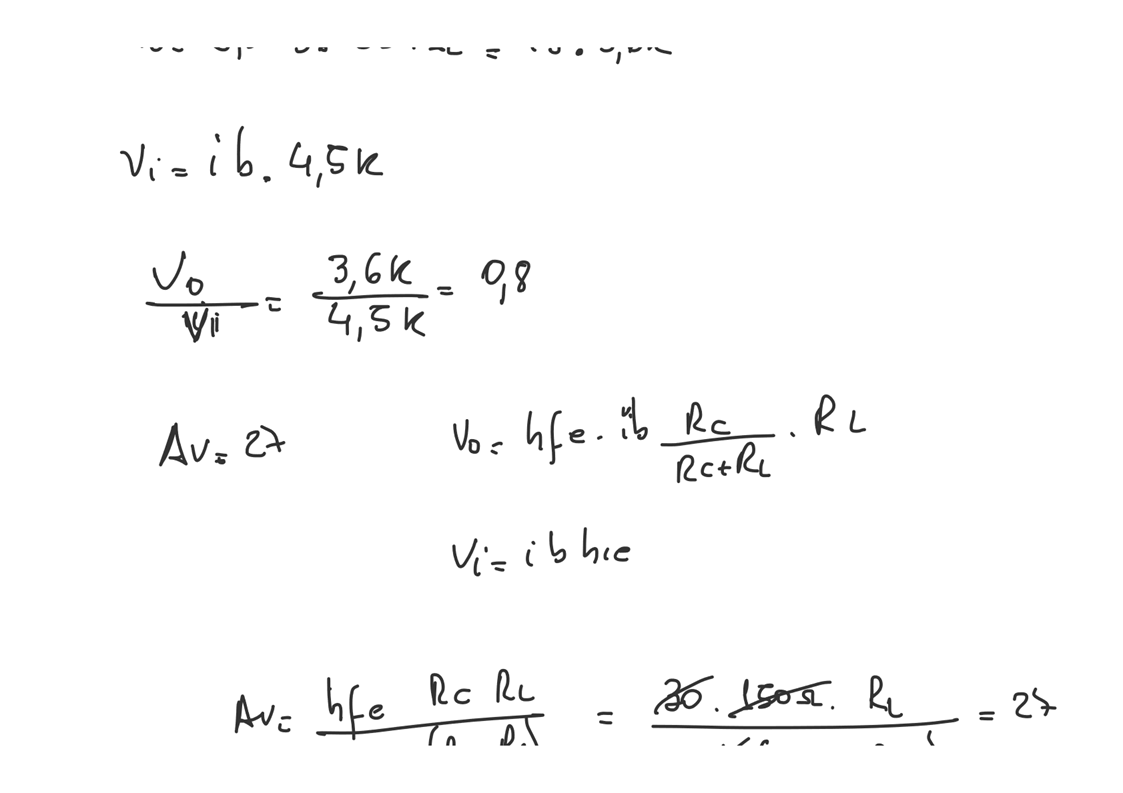 Vi = ib. 4,5k
Vo / Vi = 3,6k / 4,5k = 0,8
Av = 27 Vo = hfe. ib Rc / Rc+RL . RL
Vi = ib hie
Av = hfe Rc RL = 30. 150Ω. RL = 27